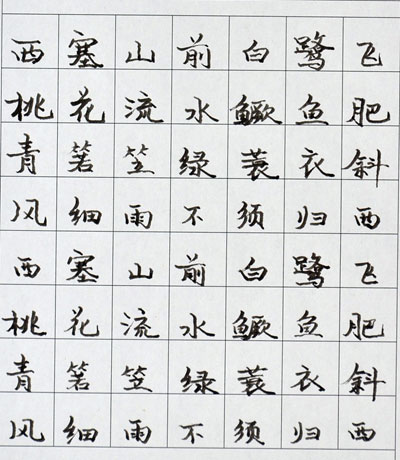 西塞山前白鹭飞
桃花流水鳜鱼肥
青箬笠绿蓑衣斜
风细雨不须归西
西塞山前白鹭飞
桃花流水鳜鱼肥
青箬笠绿蓑衣斜
风细雨不须归西